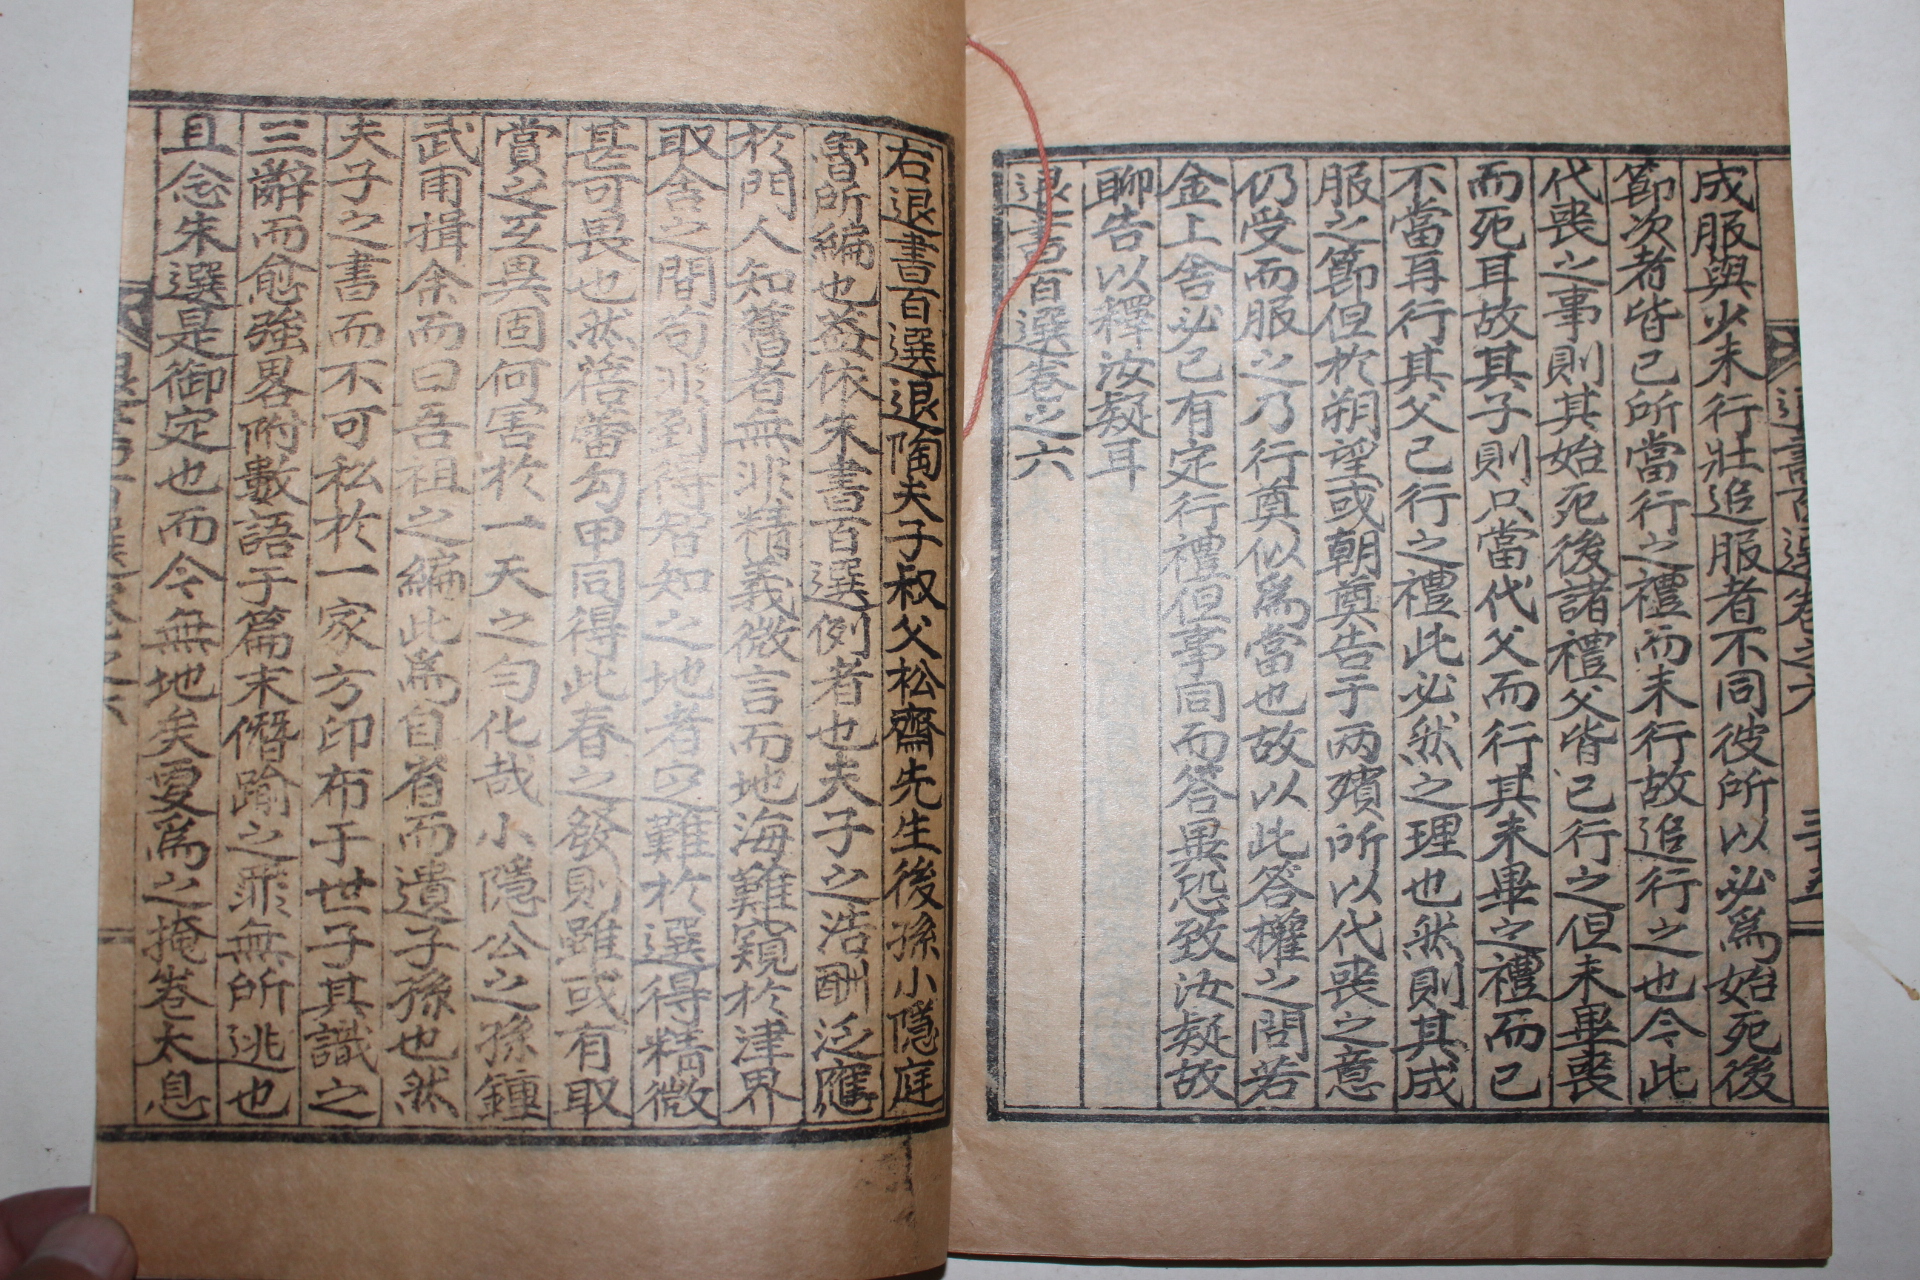 成服與少未行壯追服者不同彼所以必爲始死後
節次者皆已所當行之禮而未行故追行之也今此
代喪之事則其始死後諸禮父皆已行之但未畢喪
而死耳故其子則只當代父而行其未畢之禮而已
不當再行其父已行之禮此必然之理也然則其成
服之節但於朔望或朝奠告于两殯所以代喪之意
仍受而服之乃行奠似爲當也故以此答權之問若
金上舍必已有定行禮但事同而答異恐致汝疑故
聊告以釋汝疑耳
退書百選卷之六
退書百選卷之六
右退書百選退陶夫子叔父松齋先生後孫小隱庭
魯所編也蓋依朱書百選例者也夫子之浩酬泛應
於門人知舊者無非精義微言而地海難窺於津界
取舍之間苟非到得智知之地者之難於選得精微
甚可畏也然蓓蕾勾甲同得此春之發則雖或有取
賞之互異固何害於一天之勻化哉小隱公之孫鍾
武甫揖余而曰吾祖之編此爲自省而遺子孫也然
夫子之書而不可私於一家方印布于世子其識之
三辭而愈強畧附數語于篇末僭踰之罪無所逃也
且念朱選是御定也而今無地矣爲之掩卷太息